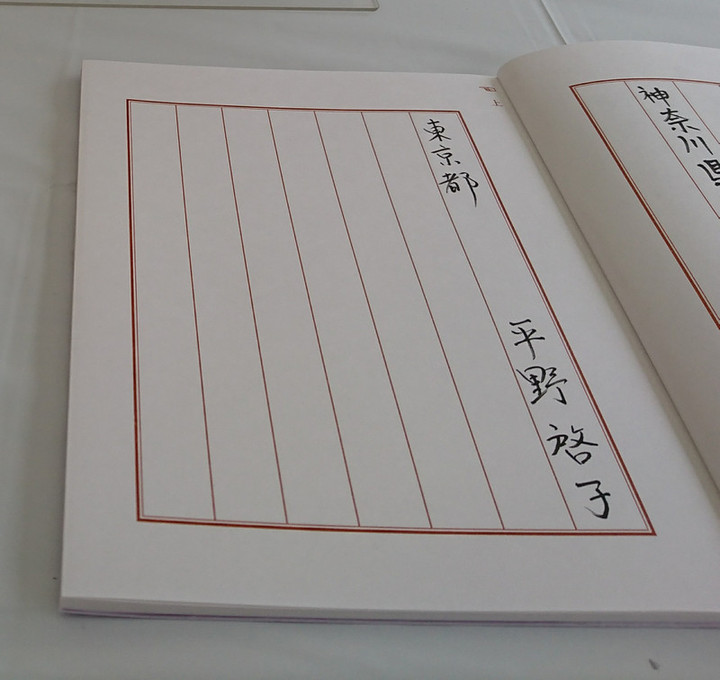 神奈川県
上
東京都 平野啓子